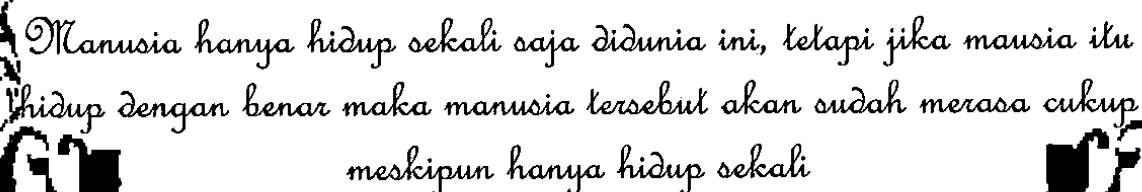 Manusia hanya hidup sekali saja didunia ini, tetapi jika mausia itu
hidup dengan benar maka manusia tersebut akan sudah merasa cukup
meskipun hanya hidup sekali